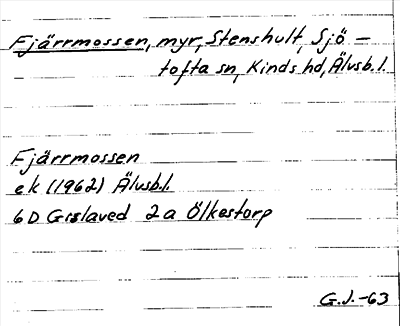 Fjärrmossen, myr, Stenshult, Sjö-
tofta sn, Kinds hd, Älvsb.l.
Fjärrmossen
ek (1962) Älvsb.l.
6D Gislaved 2a Ölkestorp
G.J.-63